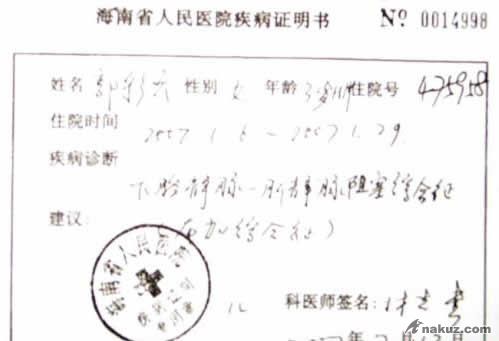 海南省人民医院疾病证明书 Nº 0014998
姓名 郭彩云 性别 女 年龄 住院号 475958
住院时间 2007.1.6~2007.1.29.
疾病诊断
下腔静脉-肝静脉阻塞综合征
建议: (布加综合征)
海南省人民医院
科医师签名:
年 月 日
nakuz.com